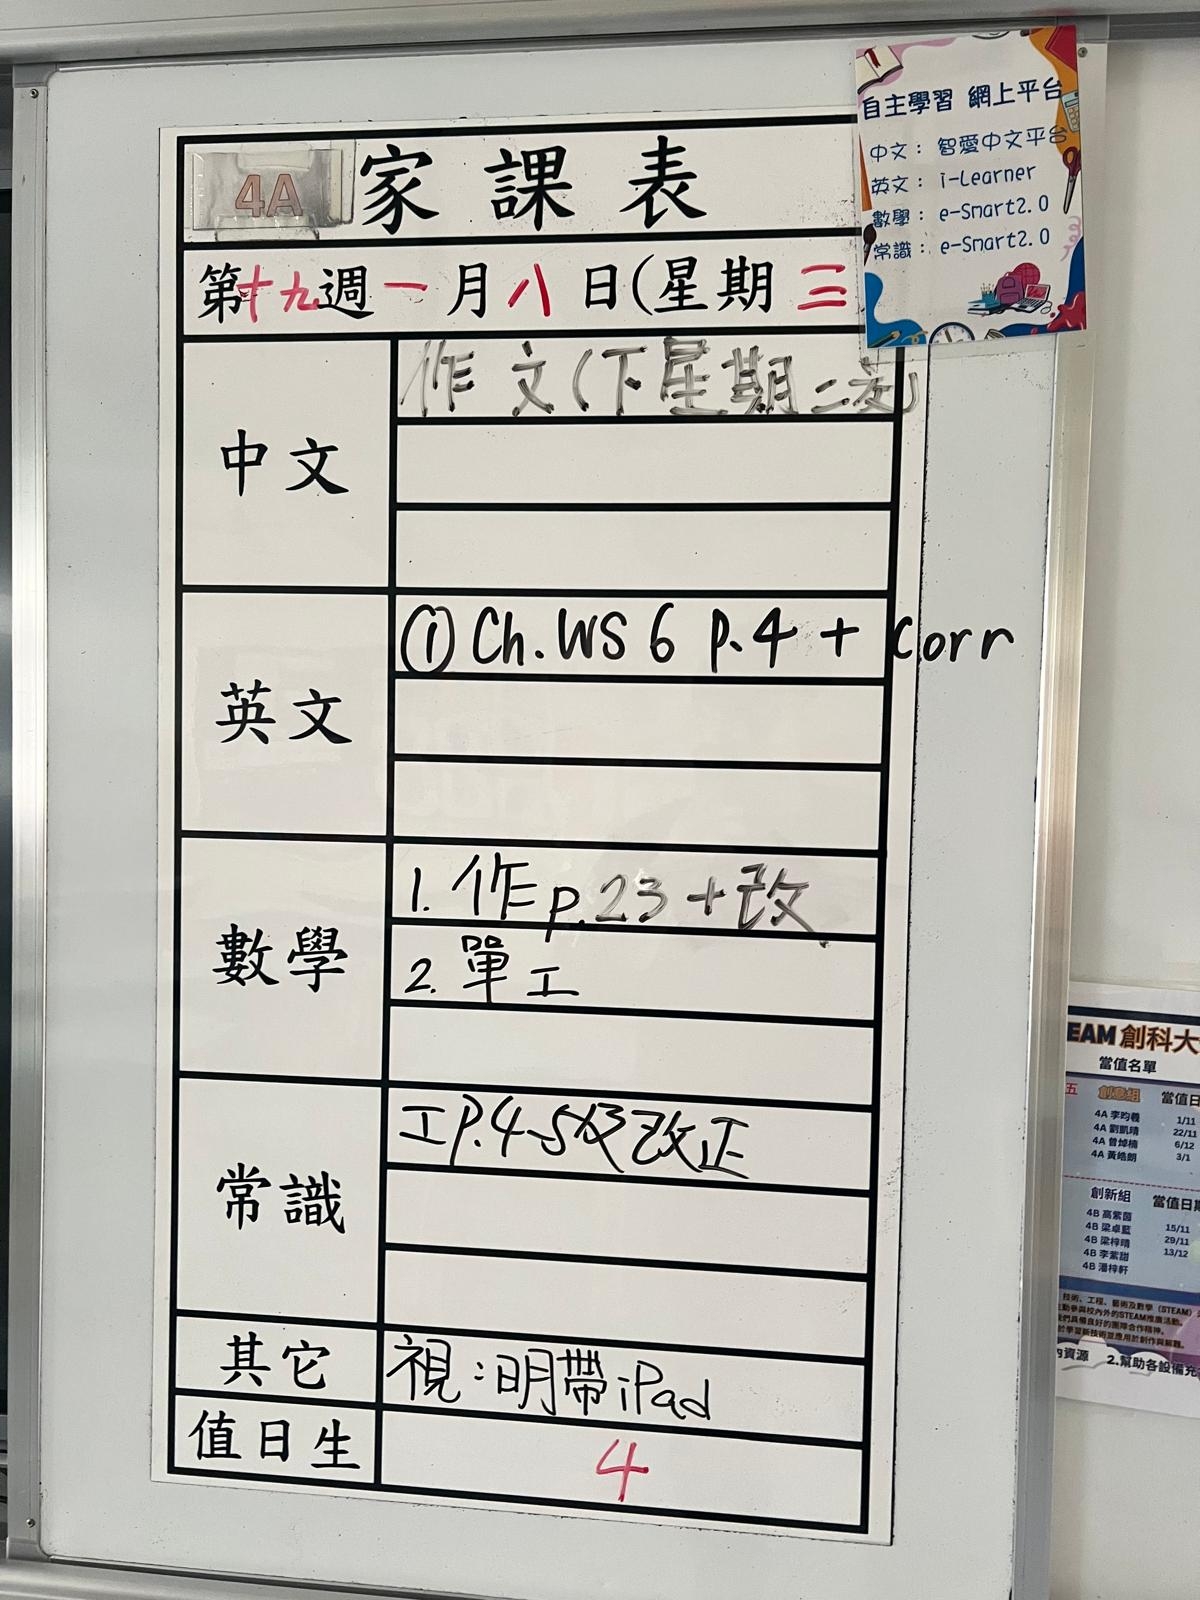 4A 家課表
第十九週一月八日(星期三
中文
作文(下星期二交)
英文
① Ch.WS 6 p.4 + Corr
數學
1. 作p.23+改
2. 單工
常識
工P.4-5及改正
其它
視:明帶iPad
值日生
4
自主學習 網上平台
中文: 智愛中文平台
英文: i-Learner
數學: e-Smart2.0
常識: e-Smart2.0
EAM 創科大
當值名單
五 創意組 當值日
4A 李昀羲 1/11
4A 劉凱晴 22/11
4A 曾焯楠 6/12
4A 黃皓朗 3/1
創新組 當值日期
4B 高紫茵 15/11
4B 梁卓藍 29/11
4B 梁梓晴 13/12
4B 李紫甜
4B 潘梓軒
技術、工程、藝術及數學 (STEAM)
主動參與校內外的STEAM推廣活動。
我們具備良好的團隊合作精神。
於學習新技術並應用於創作與解難。
內資源 2.幫助各設備充